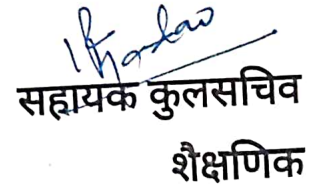 सहायक कुलसचिव
शैक्षणिक